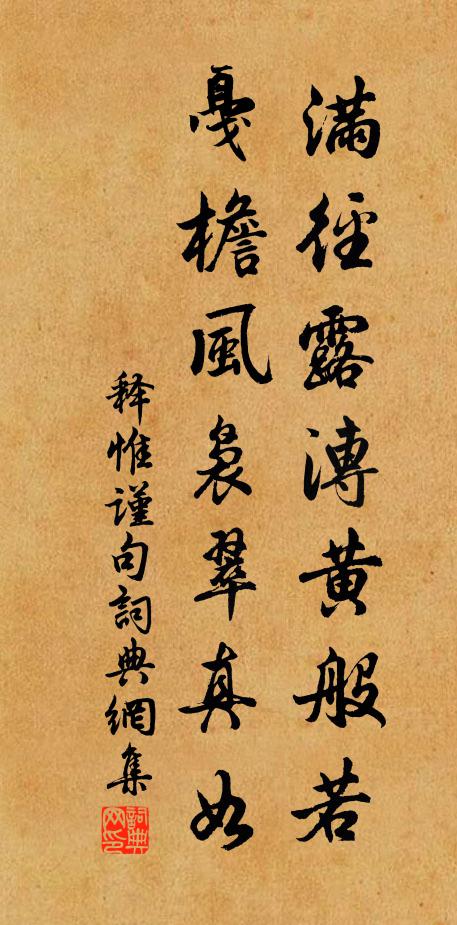 滿徑露漙黃般若
戛檐風裊翠真如
释惟謹句詞典網集
詞典网印